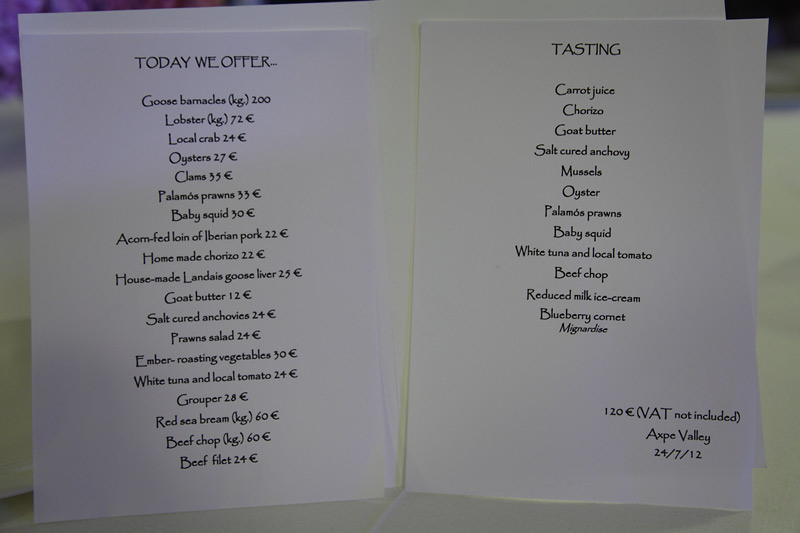 TODAY WE OFFER...
Goose barnacles (kg.) 200
Lobster (kg.) 72 €
Local crab 24 €
Oysters 27 €
Clams 35 €
Palamós prawns 33 €
Baby squid 30 €
Acorn-fed loin of Iberian pork 22 €
Home made chorizo 22 €
House-made Landais goose liver 25 €
Goat butter 12 €
Salt cured anchovies 24 €
Prawns salad 24 €
Ember- roasting vegetables 30 €
White tuna and local tomato 24 €
Grouper 28 €
Red sea bream (kg.) 60 €
Beef chop (kg.) 60 €
Beef filet 24 €
TASTING
Carrot juice
Chorizo
Goat butter
Salt cured anchovy
Mussels
Oyster
Palamós prawns
Baby squid
White tuna and local tomato
Beef chop
Reduced milk ice-cream
Blueberry cornet
Mignardise
120 € (VAT not included)
Axpe Valley
24/7/12